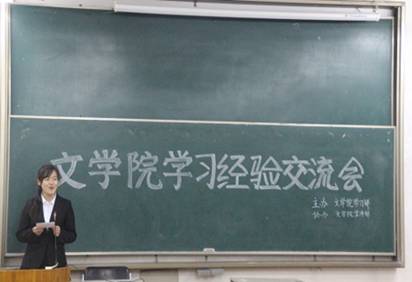 文学院学习经验交流会
主办 文学院学习部
协办 文学院宣传部